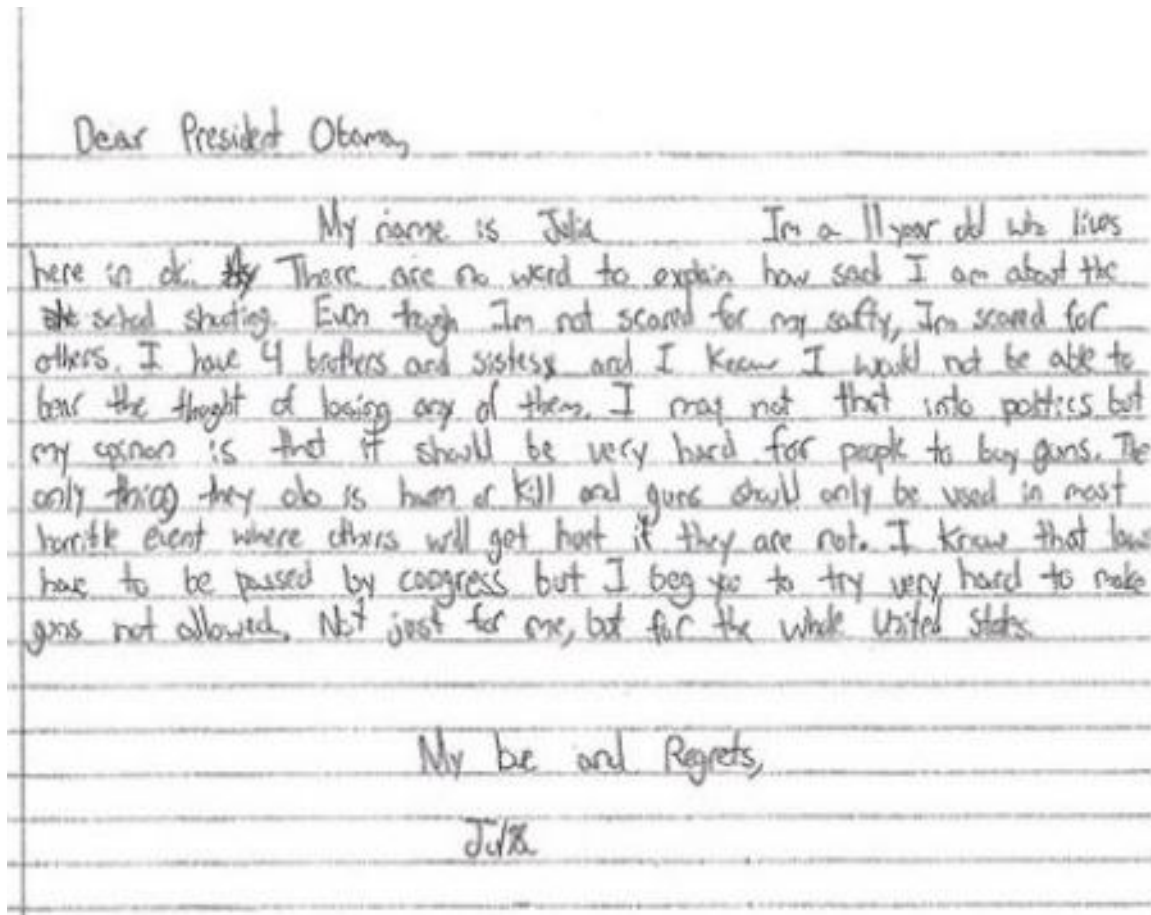 Dear President Obama,
My name is Julia Im a 11 year old who lives
here in dc. There are no word to explain how sad I am about the
school shooting. Even though Im not scared for my safty, Im scared for
others. I have 4 brothers and sisters and I know I would not be able to
bear the thought of losing any of them. I may not that into politics but
my opinon is that it should be very hard for people to buy guns. The
only thing they do is harm or kill and guns should only be used in most
horrible event where others will get hurt if they are not. I know that laws
have to be passed by congress but I beg you to try very hard to make
guns not allowed. Not just for me, but for the whole United States.
My and Regrets,
Julia